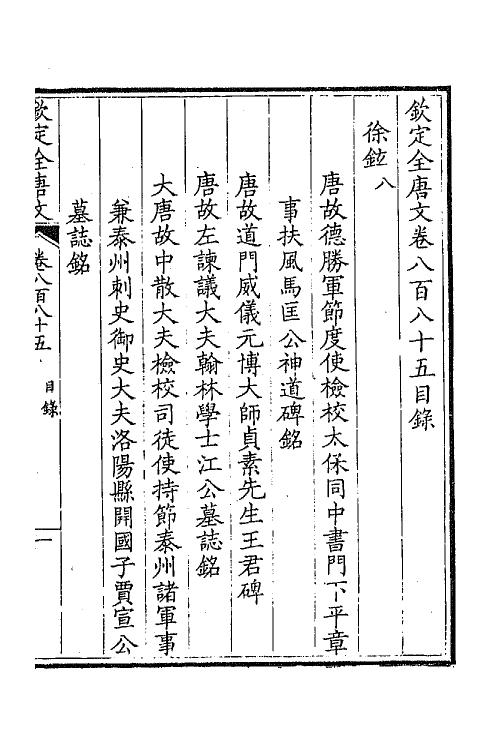 欽定全唐文卷八百八十五目錄
徐鉉八
唐故德勝軍節度使檢校太保同中書門下平章
事扶風馬匡公神道碑銘
唐故道門威儀元博大師貞素先生王君碑
唐故左諫議大夫翰林學士江公墓誌銘
大唐故中散大夫檢校司徒使持節泰州諸軍事
兼泰州刺史御史大夫洛陽縣開國子賈宣公
墓誌銘
欽定全唐文 卷八百八十五 目錄 一